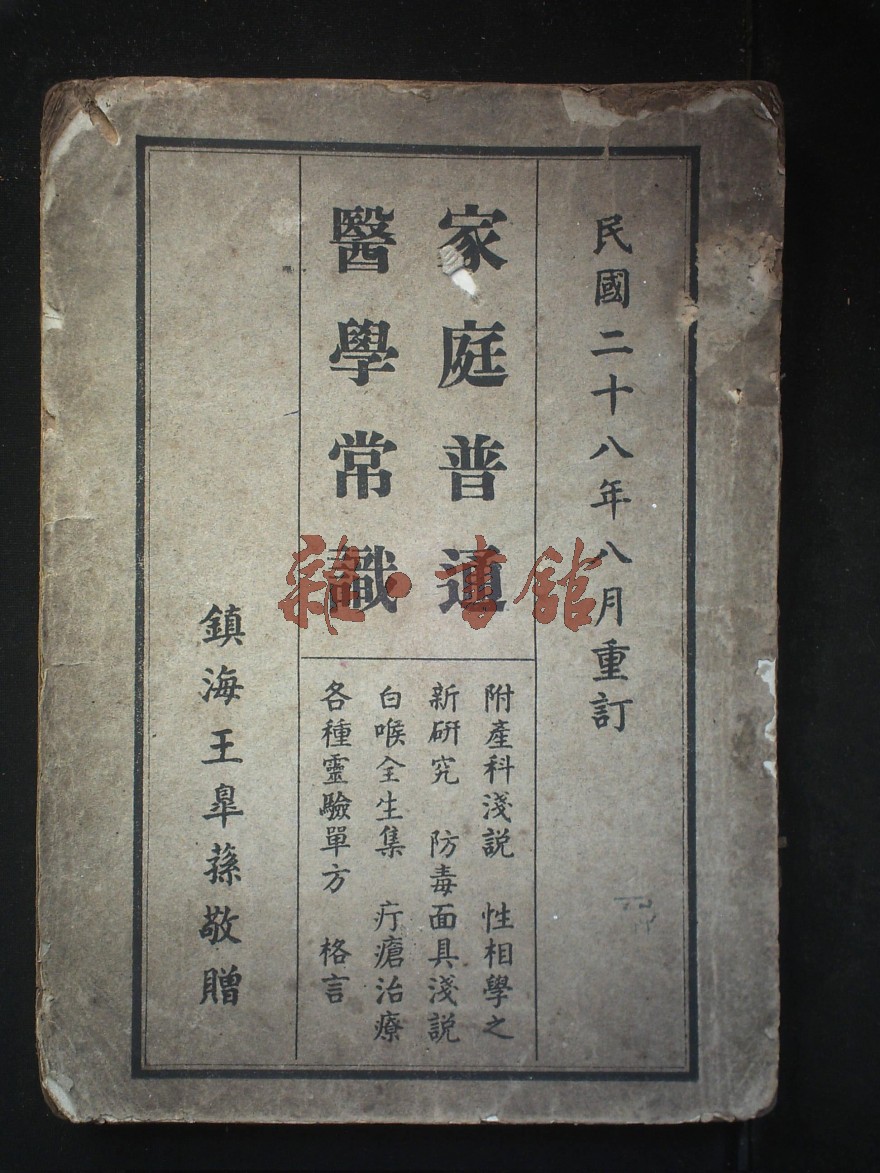 民國二十八年八月重訂
家庭普通
醫學常識
附產科淺説 性相學之
新研究 防毒面具淺説
白喉全生集 疔瘡治療
各種靈驗單方 格言
鎮海王皐蓀敬贈
雜·書館